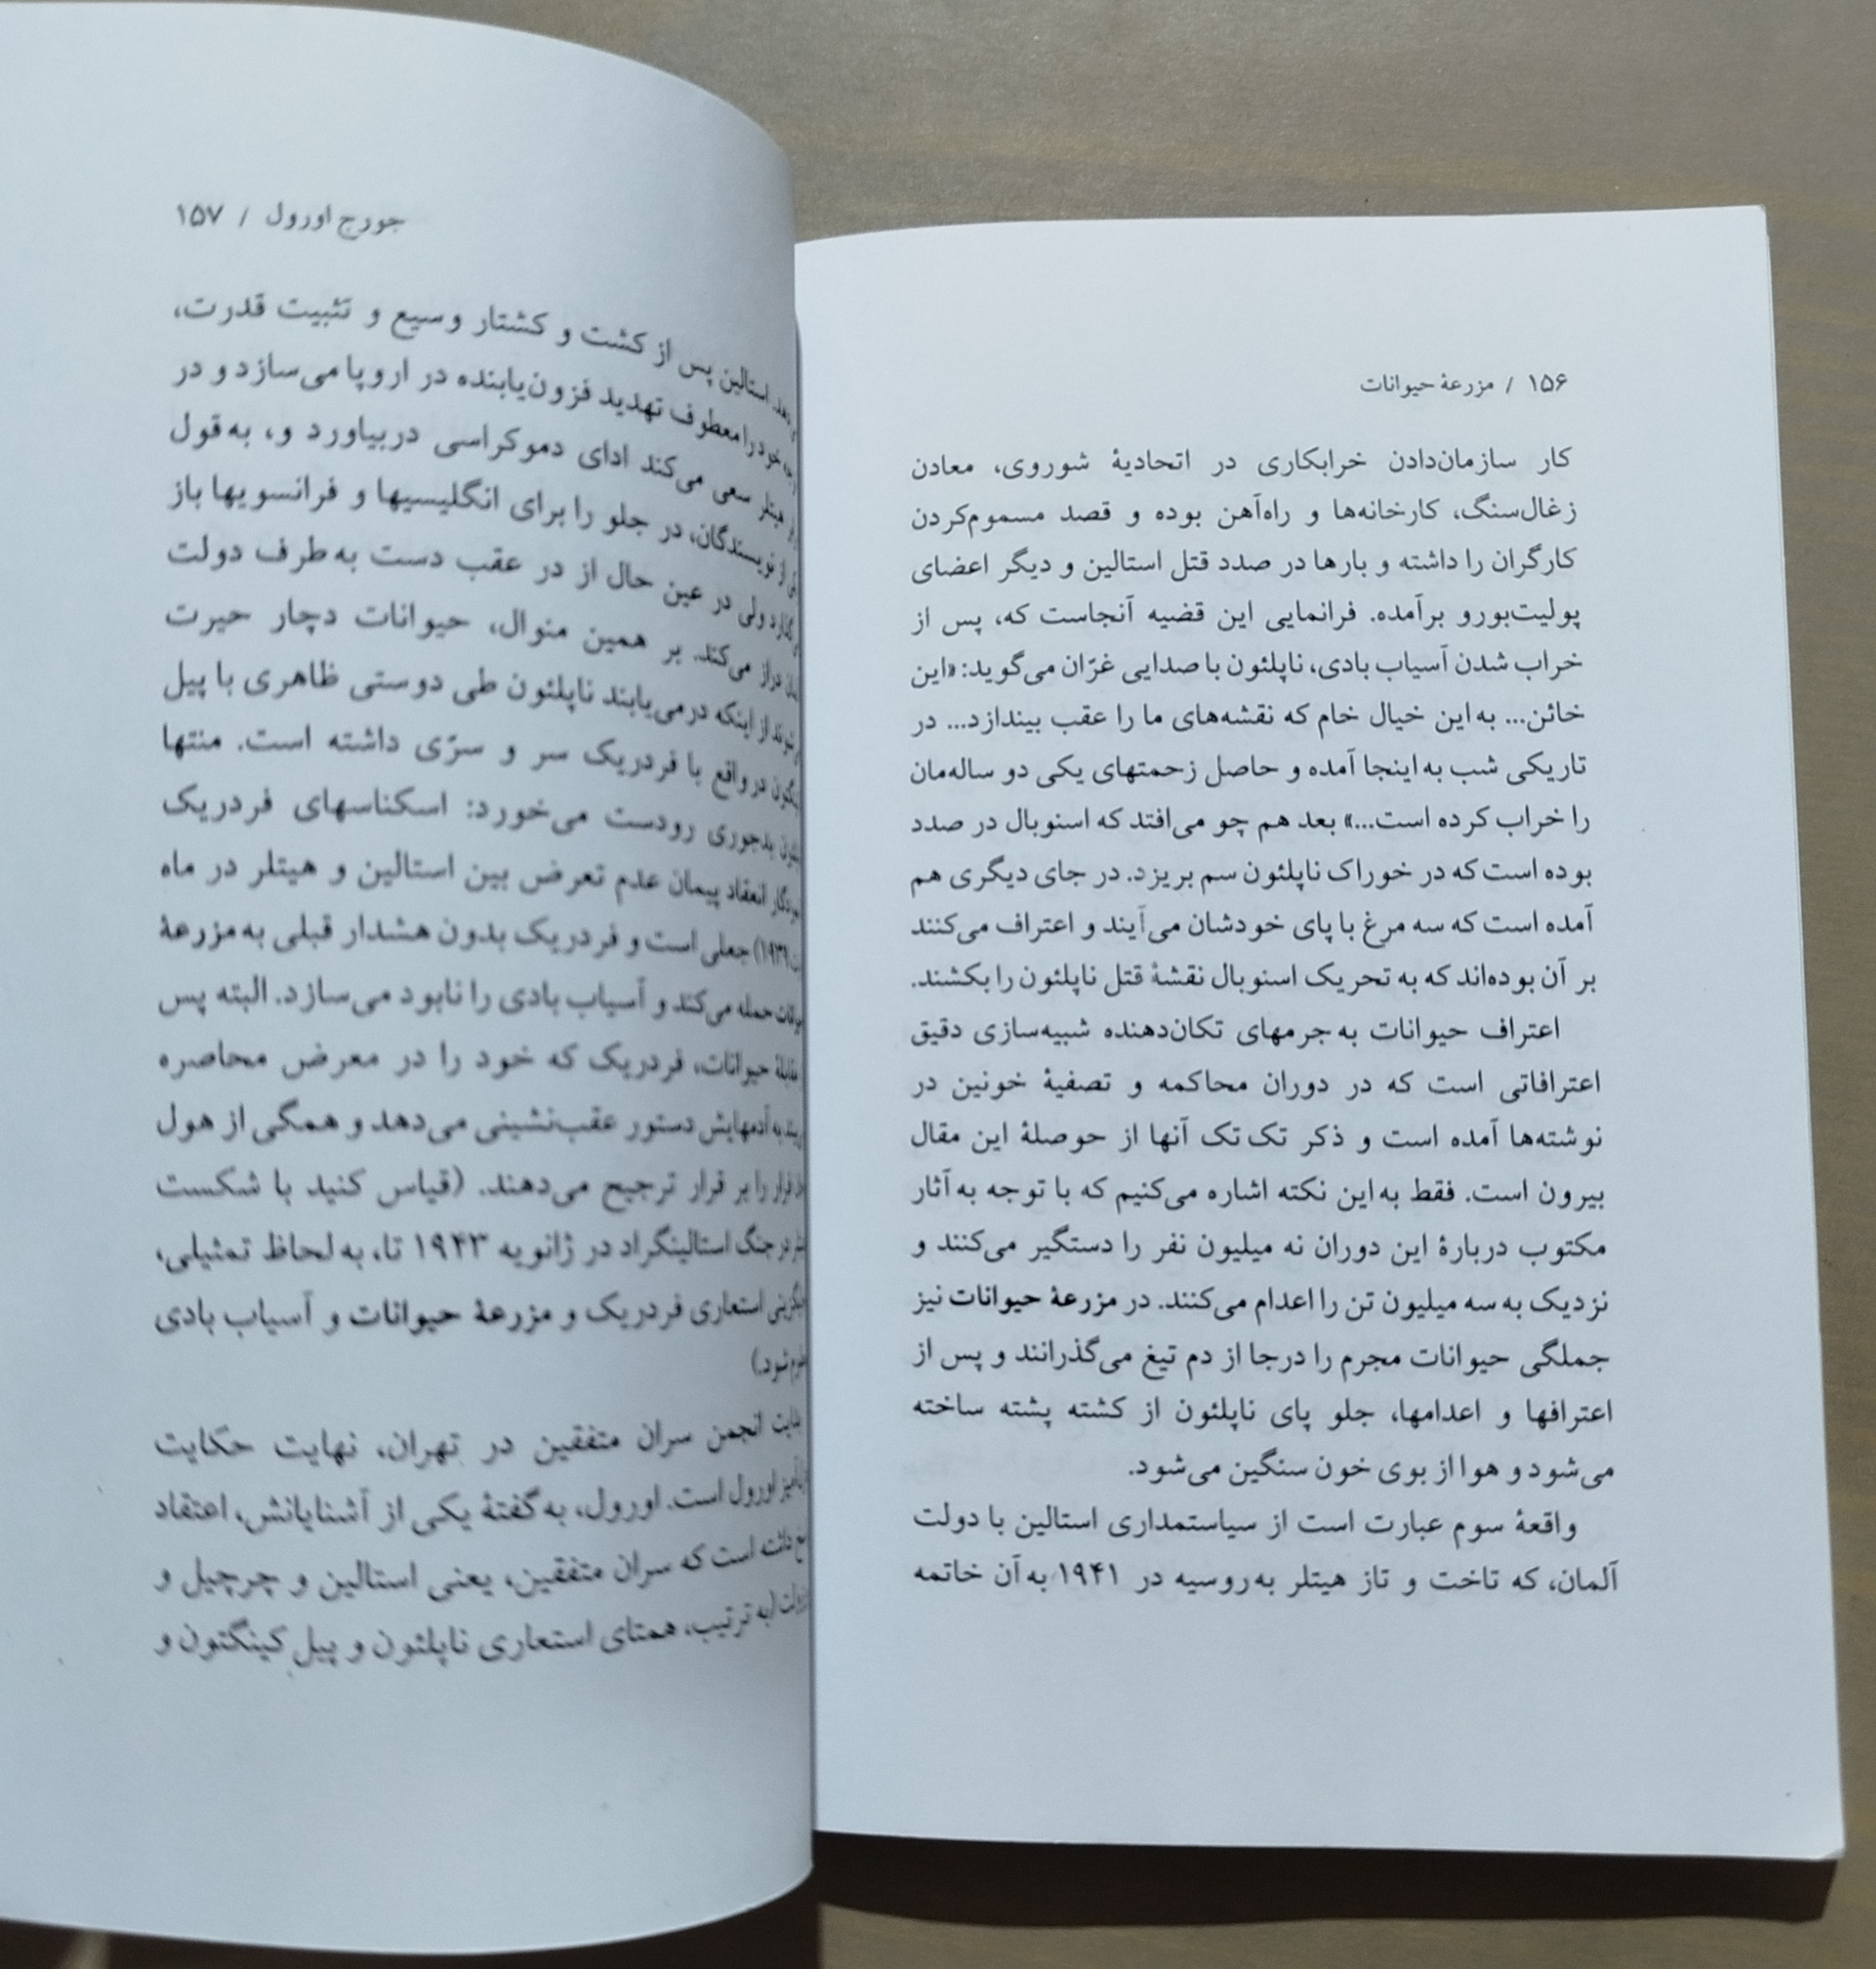 ۱۵۶ / مزرعهٔ حیوانات
کار سازمان‌دادن خرابکاری در اتحادیهٔ شوروی، معادن
زغال‌سنگ، کارخانه‌ها و راه‌آهن بوده و قصد مسموم‌کردن
کارگران را داشته و بارها در صدد قتل استالین و دیگر اعضای
پولیت‌بورو برآمده. فرانمایی این قضیه آنجاست که، پس از
خراب شدن آسیاب بادی، ناپلئون با صدایی غرّان می‌گوید: «این
خائن... به این خیال خام که نقشه‌های ما را عقب بیندازد... در
تاریکی شب به اینجا آمده و حاصل زحمتهای یکی دو ساله‌مان
را خراب کرده است...» بعد هم چو می‌افتد که اسنوبال در صدد
بوده است که در خوراک ناپلئون سم بریزد. در جای دیگری هم
آمده است که سه مرغ با پای خودشان می‌آیند و اعتراف می‌کنند
بر آن بوده‌اند که به تحریک اسنوبال نقشهٔ قتل ناپلئون را بکشند.
اعتراف حیوانات به جرمهای تکان‌دهنده شبیه‌سازی دقیق
اعترافاتی است که در دوران محاکمه و تصفیهٔ خونین در
نوشته‌ها آمده است و ذکر تک تک آنها از حوصلهٔ این مقال
بیرون است. فقط به این نکته اشاره می‌کنیم که با توجه به آثار
مکتوب دربارهٔ این دوران نه میلیون نفر را دستگیر می‌کنند و
نزدیک به سه میلیون تن را اعدام می‌کنند. در مزرعهٔ حیوانات نیز
جملگی حیوانات مجرم را درجا از دم تیغ می‌گذرانند و پس از
اعترافها و اعدامها، جلو پای ناپلئون از کشته پشته ساخته
می‌شود و هوا از بوی خون سنگین می‌شود.
واقعهٔ سوم عبارت است از سیاستمداری استالین با دولت
آلمان، که تاخت و تاز هیتلر به روسیه در ۱۹۴۱ به آن خاتمه
جورج اورول / ۱۵۷
استالین پس از کشت و کشتار وسیع و تثبیت قدرت،
خود را معطوف تهدید فزون‌یابنده در اروپا می‌سازد و در
هیتلر سعی می‌کند ادای دموکراسی دربیاورد و، به قول
از نویسندگان، در جلو را برای انگلیسیها و فرانسویها باز
ولی در عین حال از در عقب دست به طرف دولت
دراز می‌کند. بر همین منوال، حیوانات دچار حیرت
از اینکه درمی‌یابند ناپلئون طی دوستی ظاهری با پیل
در واقع با فردریک سر و سرّی داشته است. منتها
بدجوری رودست می‌خورد: اسکناسهای فردریک
انعقاد پیمان عدم تعرض بین استالین و هیتلر در ماه
۱۹۳۹) جعلی است و فردریک بدون هشدار قبلی به مزرعهٔ
حمله می‌کند و آسیاب بادی را نابود می‌سازد. البته پس
حیوانات، فردریک که خود را در معرض محاصره
به آدمهایش دستور عقب‌نشینی می‌دهد و همگی از هول
فرار را بر قرار ترجیح می‌دهند. (قیاس کنید با شکست
در جنگ استالینگراد در ژانویه ۱۹۴۳ تا، به لحاظ تمثیلی،
استعاری فردریک و مزرعهٔ حیوانات و آسیاب بادی
شود.)
انجمن سران متفقین در تهران، نهایت حکایت
اورول است. اورول، به گفتهٔ یکی از آشنایانش، اعتقاد
داشته است که سران متفقین، یعنی استالین و چرچیل و
(به ترتیب، همتای استعاری ناپلئون و پیل کینگتون و